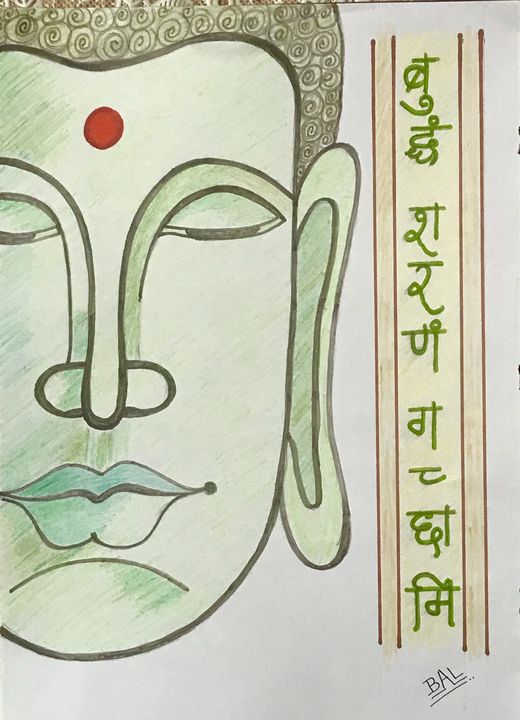 बुद्धं शरणं गच्छामि
BAL..